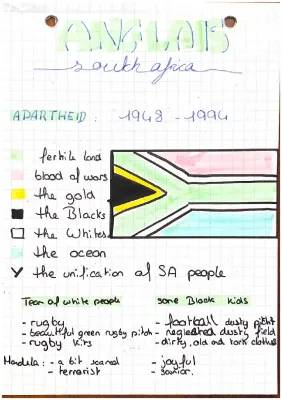 ANGLAIS
south africa
APARTHEID : 1948 - 1994
fertile land
blood of wars
the gold
the Blacks
the Whites
the ocean
the unification of SA people
Team of white people
some Black kids
- rugby
- football dusty pitch
- beautiful green rugby pitch
- neglected dusty field
- rugby kits
- dirty, old and torn clothes
Mandela : - a bit scared
- joyful
- terrorist
- savior.